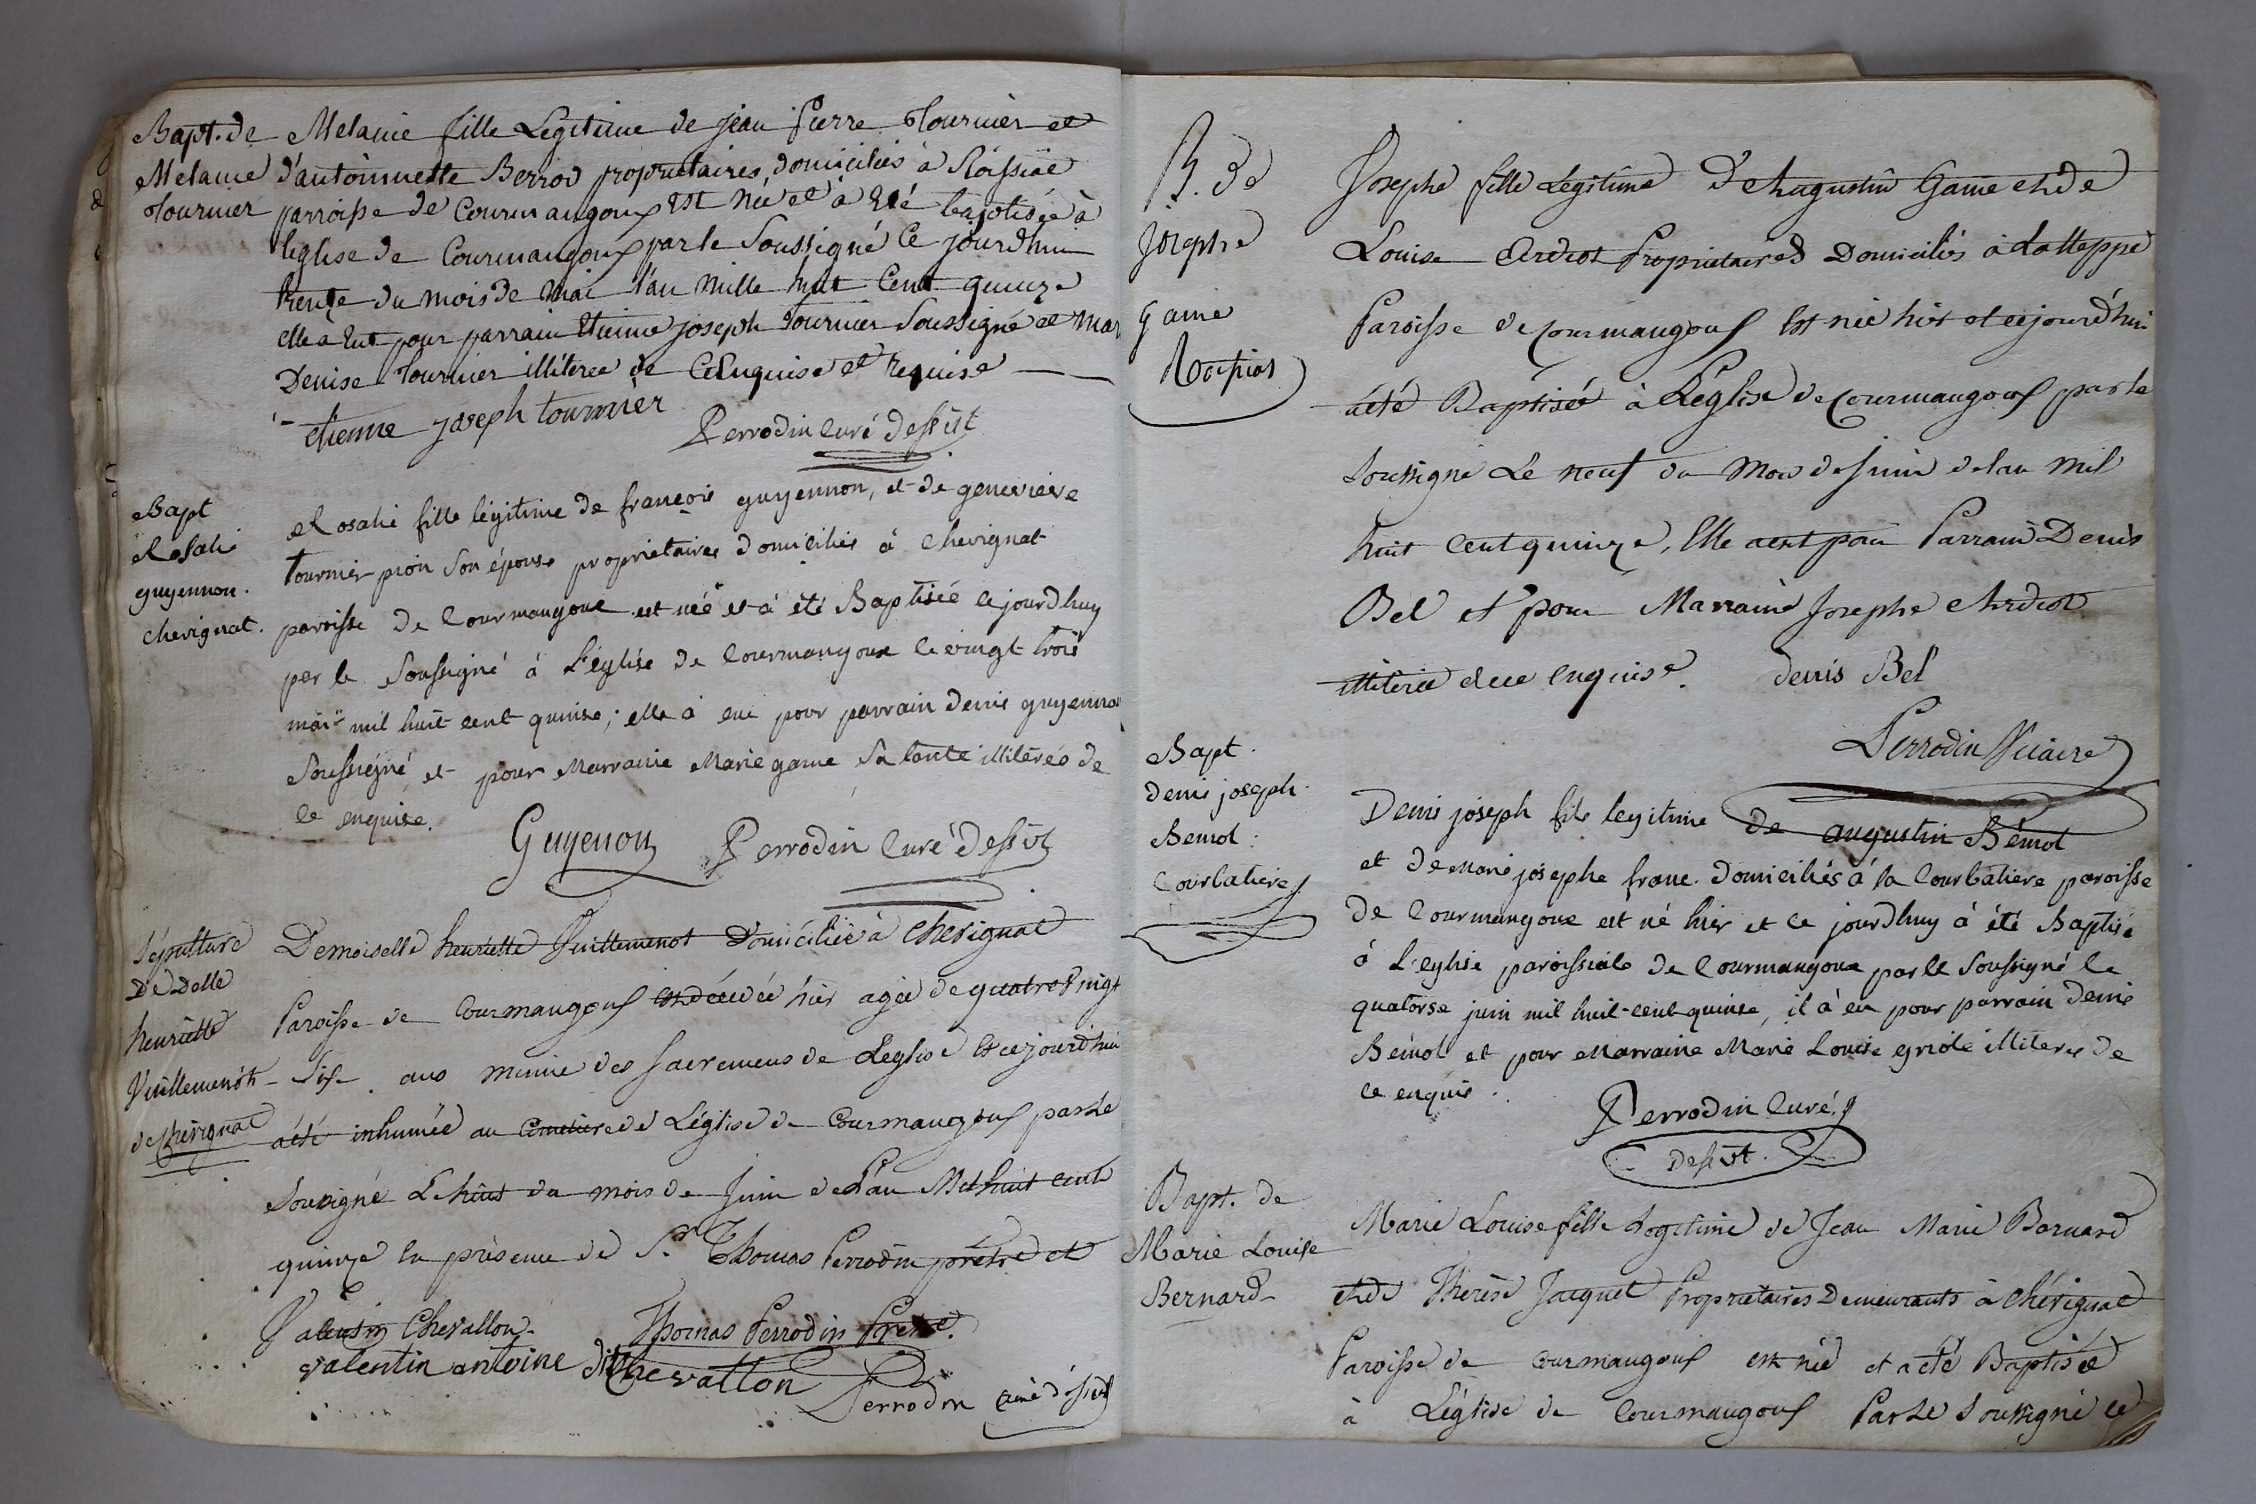 Bapt. de
Melanie
Tournier
Melanie fille Legitime de jean pierre Tournier et
d'antoinnette Berrod proprietaires domiciliés à Roissiat
parroisse de Courmangoux est née et à été baptisée à
l'eglise de Courmangoux par le Soussigné Ce jourdhui
trente du mois de Mai l'an mille huit Cent quinze
elle à Eut pour parrain Etienne joseph Tournier Soussigné et mar
Denise Tournier illiterée de Ce Enquise et requise
etienne joseph tournier
Perrodin Curé dessvt
Bapt
Rosalie
guyennon.
chevignat.
Rosalie fille légitime de françois guyennon, et de genevieve
tournier pion son épouse proprietaires domiciliés à chevignat
paroisse de Courmangoux est née et à été Baptisée ce jourdhuy
par le Soussigné à L'église de Courmangoux le vingt trois
mai mil huit cent quinse; elle à eut pour parrain denis guyennon
Soussigné, et pour Marraine Marie game sa tante illiterés de
ce enquise.
Guyenon
Perrodin Curé dessvt
Sépulture
De Delle
henriette
Vuillemenot
de chevignat
Demoiselle henriette Vuillemenot Domiciliée à Chevignat
Paroisse de Courmangoux est décédée hier agée de quatre Vingt
Six ans munie des sacremens de L'eglise et ce jourd'hui
a été inhumée au Cimetiere de L'église de Courmangoux par le
Soussigné Le huit du mois de Juin de L'an Mil huit cent
quinze en présence de Sr Thomas Perrodin prêtre et
Valentin Chevallon
Thomas Perrodin Prêtre.
valentin antoine dit chevallon
Perrodin curé dessvt
B. de
Josephe
Game
Roissiat
Josephe fille Légitime D'Augustin Game et de
Louise Ardiot Proprietaires Domiciliés à La tteppe
Paroisse de Courmangoux Est née hier et ce jourd'hui
a été Baptisée à L'église de Courmangoux par le
soussigné Le neuf du Mois de Juin de lan mil
huit Cent quinze, Elle a eut pour Parrain Denis
Bel et pour Marraine Josephe Ardiot
illiterée de ce enquise. denis Bel
Perrodin Vicaire
Bapt.
denis joseph.
Bernol:
Courbatiere
Denis joseph fils legitime de augustin Bernol
et de marie josephe franc. domiciliés à la Courbatiere paroisse
de Courmangoux est né hier et ce jourdhuy à été Baptisé
à L'eglise paroissiale de Courmangoux par le Soussigné le
quatorse juin mil huit-cent quinse, il à eu pour parrain denis
Bernol et pour Marraine Marie Louise griole illiteres de
ce enquis.
Perrodin Curé
dessvt.
Bapt. de
Marie Louise
Bernard
Marie Louise fille Legitime de Jean Marie Bernard
et de Thérèse Jacquet Proprietaires Demeurants à Chévignat
Paroisse de Courmangoux est née et a été Baptisée
à L'église de Courmangoux Par Le Soussigné ce